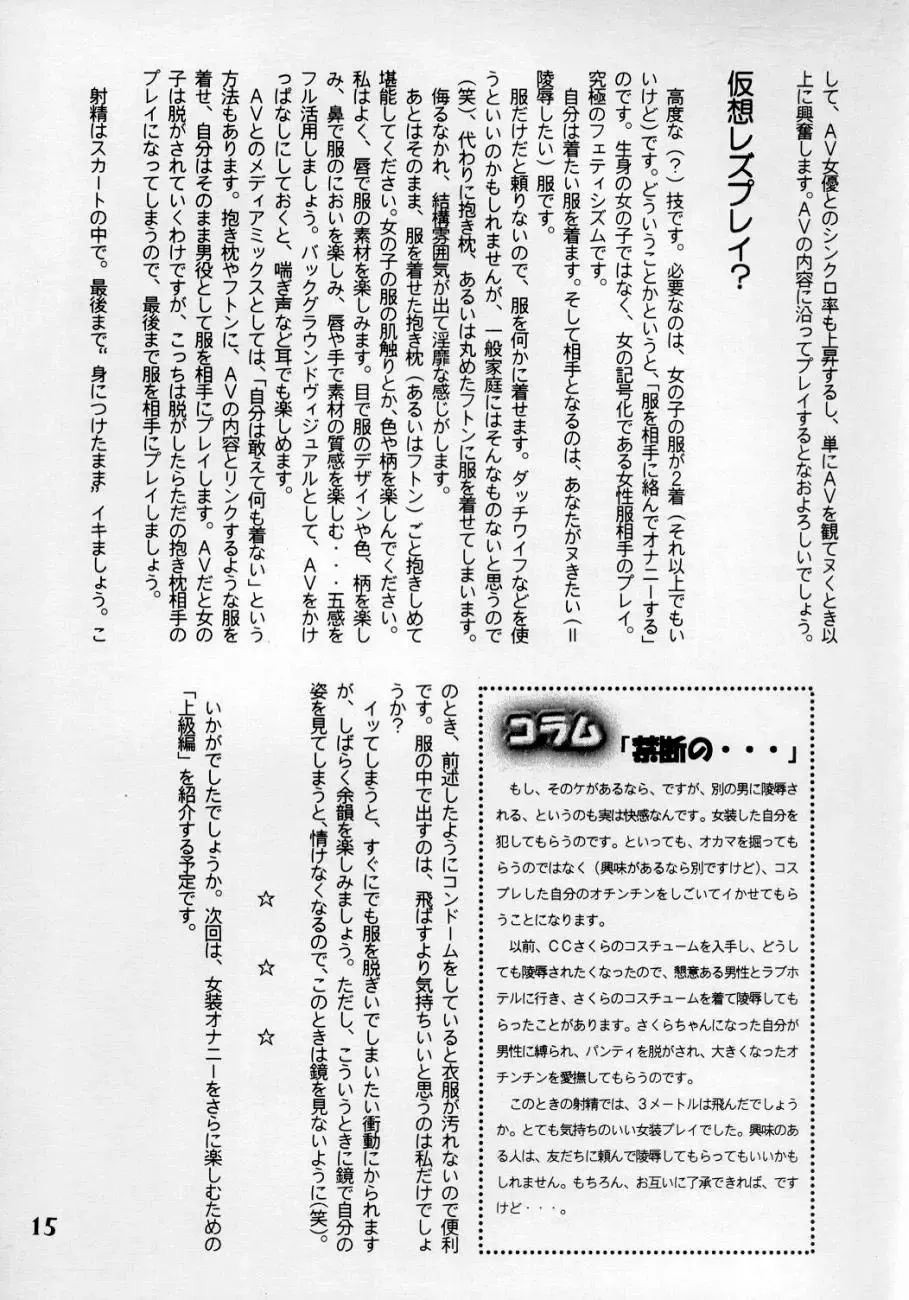 して、ＡＶ女優とのシンクロ率も上昇するし、単にＡＶを観てヌくとき以
上に興奮します。ＡＶの内容に沿ってプレイするとなおよろしいでしょう。
仮想レズプレイ？
高度な（？）技です。必要なのは、女の子の服が２着（それ以上でもい
いけど）です。どういうことかというと、「服を相手に絡んでオナニーする」
のです。生身の女の子ではなく、女の記号化である女性服相手のプレイ。
究極のフェティシズムです。
自分は着たい服を着ます。そして相手となるのは、あなたがヌきたい（＝
陵辱したい）服です。
服だけだと頼りないので、服を何かに着せます。ダッチワイフなどを使
うといいのかもしれませんが、一般家庭にはそんなものないと思うので
（笑）、代わりに抱き枕、あるいは丸めたフトンに服を着せてしまいます。
侮るなかれ、結構雰囲気が出て淫靡な感じがします。
あとはそのまま、服を着せた抱き枕（あるいはフトン）ごと抱きしめて
堪能してください。女の子の服の肌触りとか、色や柄を楽しんでください。
私はよく、唇で服の素材を楽しみます。目で服のデザインや色、柄を楽し
み、鼻で服のにおいを楽しみ、唇や手で素材の質感を楽しむ・・・五感を
フル活用しましょう。バックグラウンドヴィジュアルとして、ＡＶをかけ
っぱなしにしておくと、喘ぎ声など耳でも楽しめます。
ＡＶとのメディアミックスとしては、「自分は敢えて何も着ない」という
方法もあります。抱き枕やフトンに、ＡＶの内容とリンクするような服を
着せ、自分はそのまま男役として服を相手にプレイします。ＡＶだと女の
子は脱がされていくわけですが、こっちは脱がしたらただの抱き枕相手の
プレイになってしまうので、最後まで服を相手にプレイしましょう。
射精はスカートの中で。最後まで〝身につけたまま〟イキましょう。こ
のとき、前述したようにコンドームをしていると衣服が汚れないので便利
です。服の中で出すのは、飛ばすより気持ちいいと思うのは私だけでしょ
うか？
イッてしまうと、すぐにでも服を脱ぎいでしまいたい衝動にかられます
が、しばらく余韻を楽しみましょう。ただし、こういうときに鏡で自分の
姿を見てしまうと、情けなくなるので、このときは鏡を見ないように（笑）。
☆　☆　☆
いかがでしたでしょうか。次回は、女装オナニーをさらに楽しむための
「上級編」を紹介する予定です。
コラム「禁断の・・・」
もし、そのケがあるなら、ですが、別の男に陵辱さ
れる、というのも実は快感なんです。女装した自分を
犯してもらうのです。といっても、オカマを掘っても
らうのではなく（興味があるなら別ですけど）、コス
プレした自分のオチンチンをしごいてイかせてもら
うことになります。
以前、ＣＣさくらのコスチュームを入手し、どうし
ても陵辱されたくなったので、懇意ある男性とラブホ
テルに行き、さくらのコスチュームを着て陵辱しても
らったことがあります。さくらちゃんになった自分が
男性に縛られ、パンティを脱がされ、大きくなったオ
チンチンを愛撫してもらうのです。
このときの射精では、３メートルは飛んだでしょう
か。とても気持ちのいい女装プレイでした。興味のあ
る人は、友だちに頼んで陵辱してもらってもいいかも
しれません。もちろん、お互いに了承できれば、です
けど・・・。
15